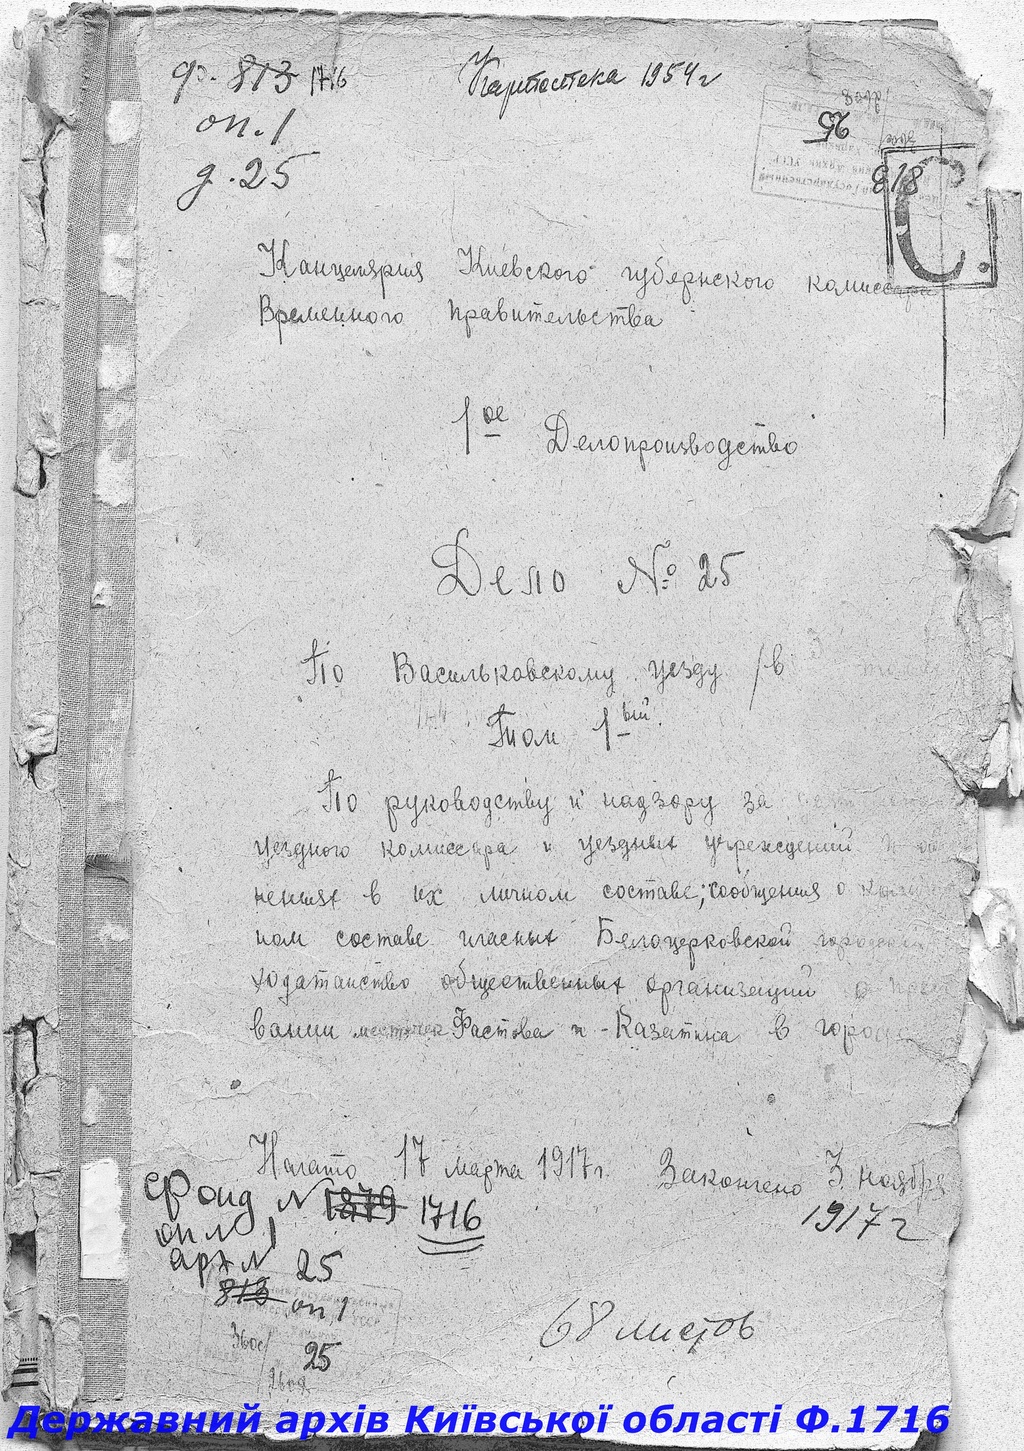 ф. 813 1716
оп. 1
д. 25
Картотека 1954 г
25
818
С.
Канцелярия Киевского губернского комиссара
Временного правительства
1ое Делопроизводство
Дело № 25
По Васильковскому уезду /в 3
Том 1ый
По руководству и надзору за
уездного комиссара и уездных учреждений и
нениях в их личном составе; сообщения о
ном составе гласных Белоцерковской городской
ходатайство общественных организаций о
вании местечек Фастова и Казатина в города
Начато 17 марта 1917 г. Закончено 3 ноября
1917 г
Фонд № 1879 1716
оп № 1
арх № 25
813 оп 1
25
68 листов
Державний архів Київської області Ф.1716